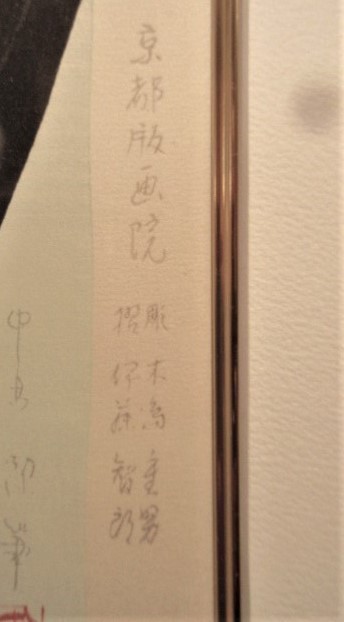 京都版画院
彫 木 圭男
摺 伊藤智郎
中 筆